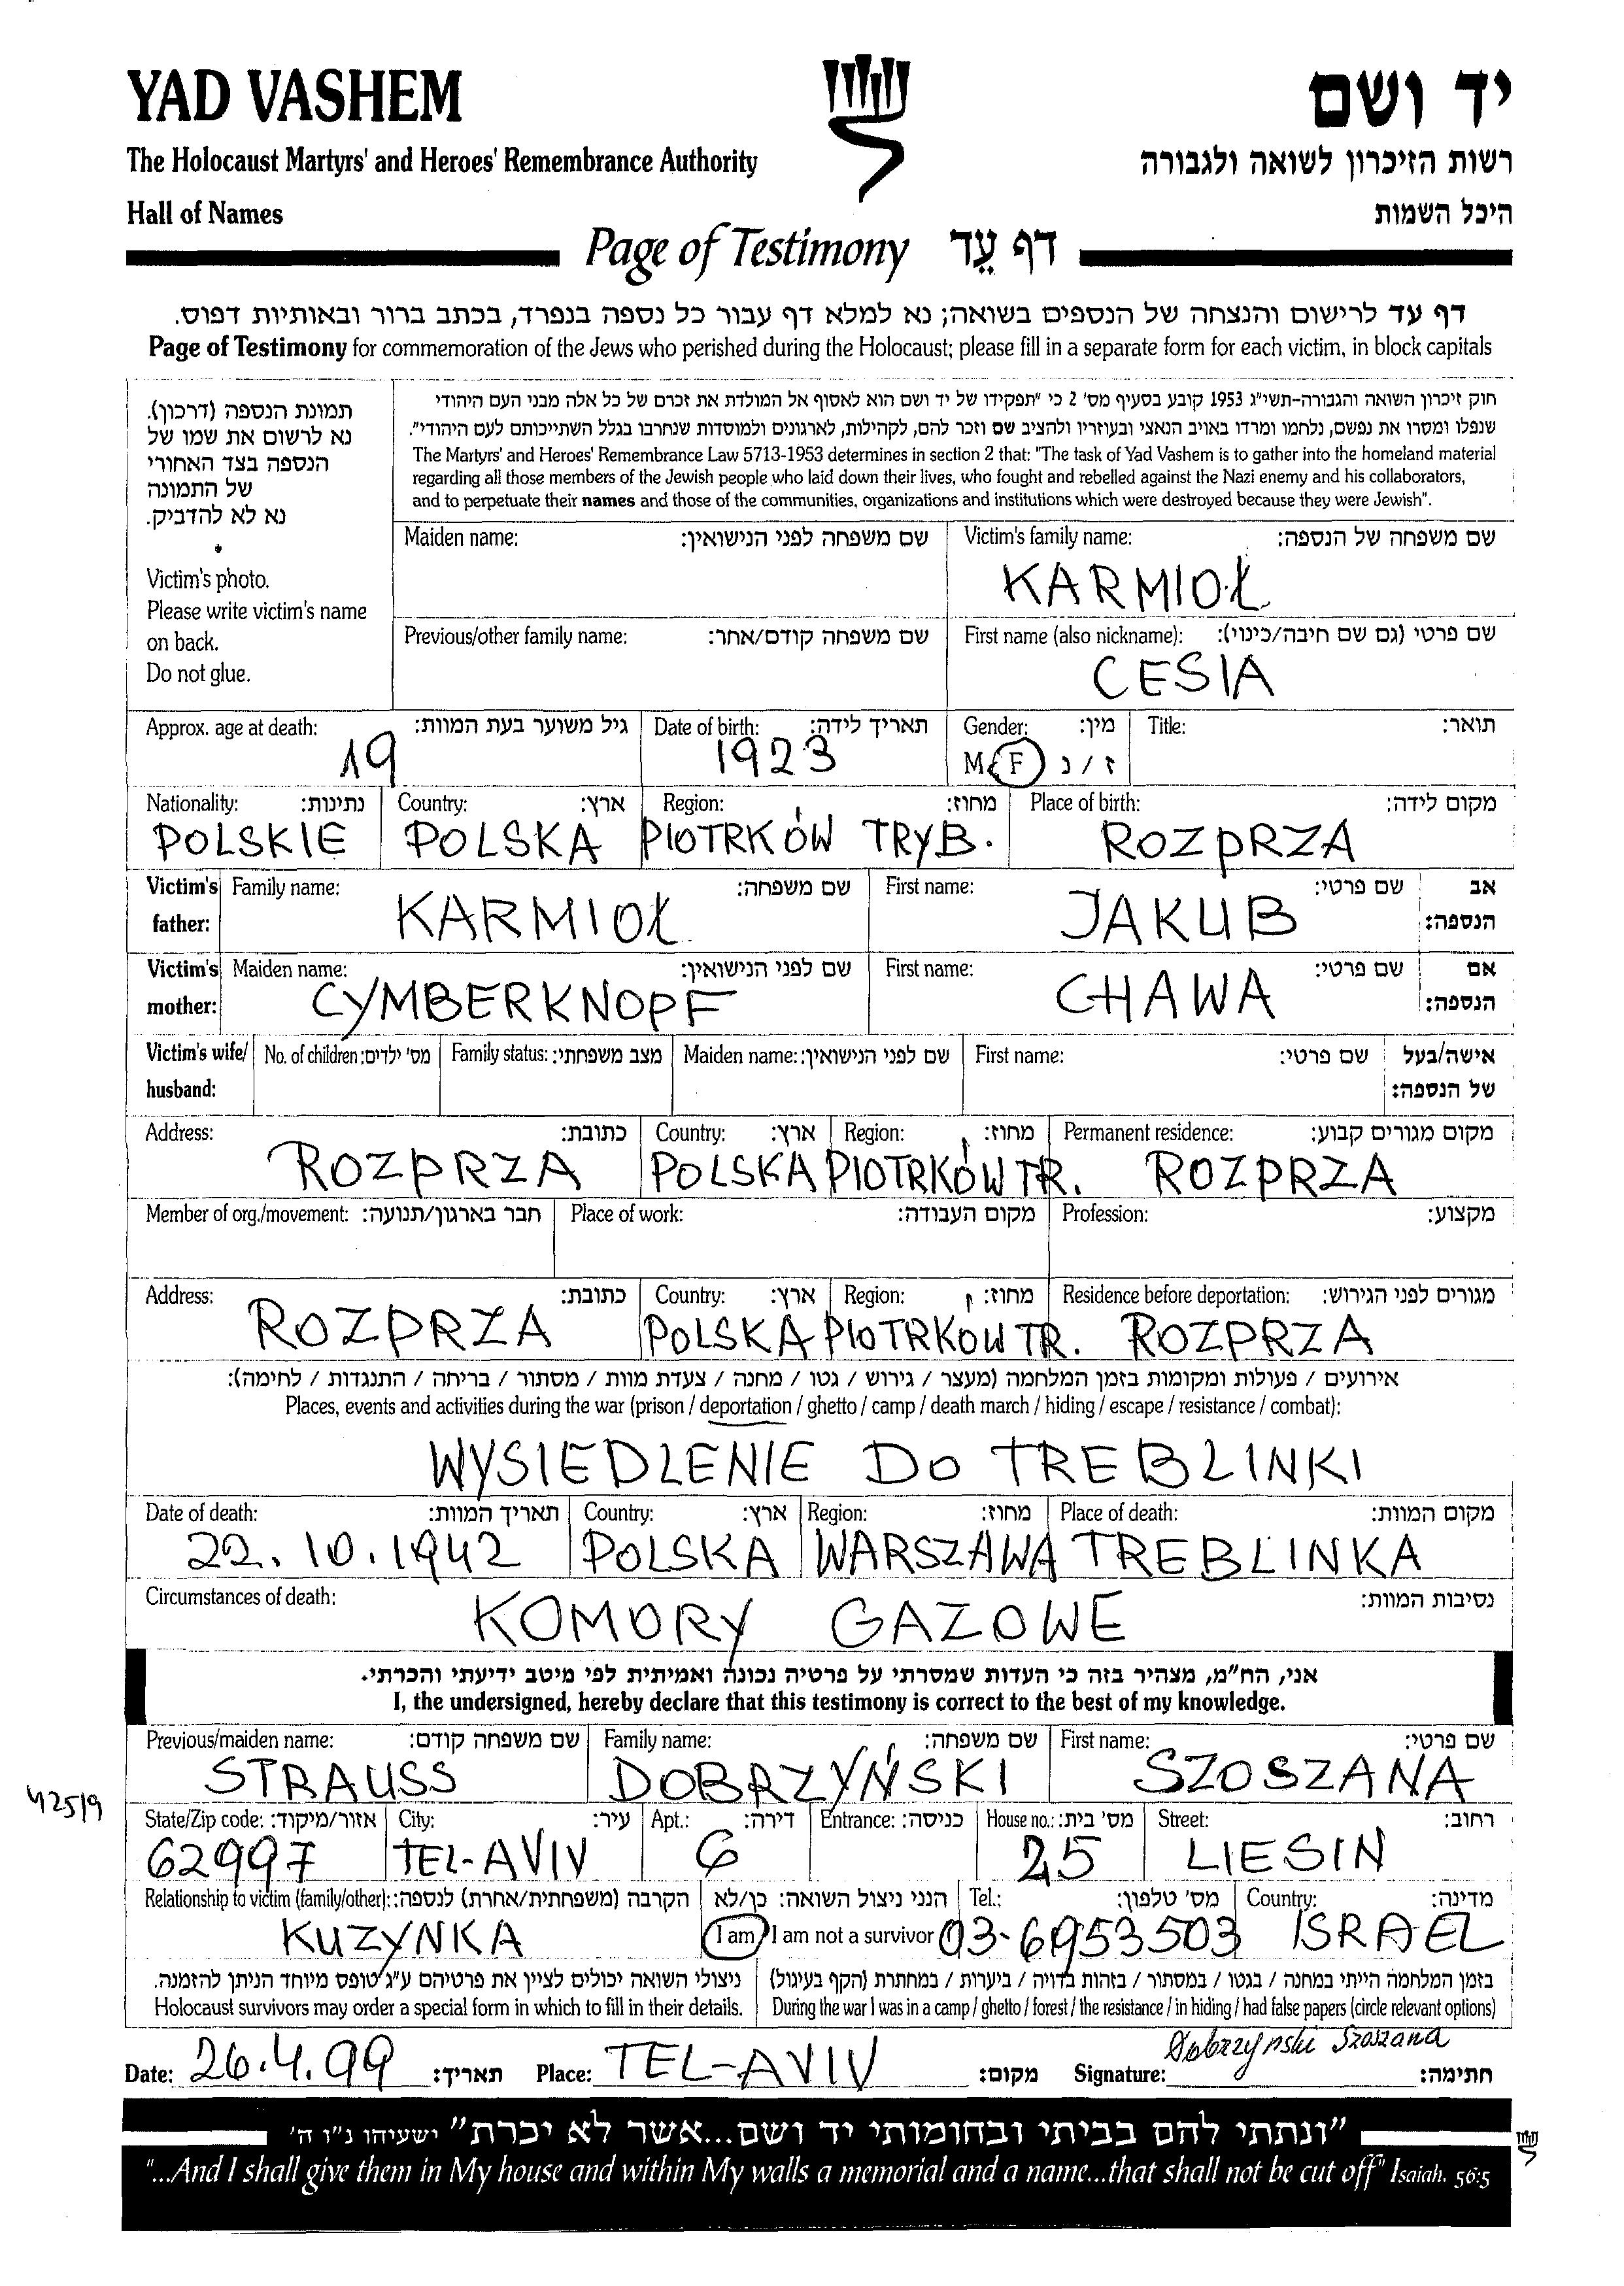 YAD VASHEM
יד ושם
The Holocaust Martyrs' and Heroes' Remembrance Authority
רשות הזיכרון לשואה ולגבורה
Hall of Names
היכל השמות
Page of Testimony דף עֵד
דף עד לרישום והנצחה של הנספים בשואה; נא למלא דף עבור כל נספה בנפרד, בכתב ברור ובאותיות דפוס.
Page of Testimony for commemoration of the Jews who perished during the Holocaust; please fill in a separate form for each victim, in block capitals
תמונת הנספה (דרכון).
נא לרשום את שמו של
הנספה בצד האחורי
של התמונה
נא לא להדביק.
Victim's photo.
Please write victim's name
on back.
Do not glue.
חוק זיכרון השואה והגבורה-תשי"ג 1953 קובע בסעיף מס' 2 כי "תפקידו של יד ושם הוא לאסוף אל המולדת את זכרם של כל אלה מבני העם היהודי
שנפלו ומסרו את נפשם, נלחמו ומרדו באויב הנאצי ובעוזריו ולהציב שם וזכר להם, לקהילות, לארגונים ולמוסדות שנחרבו בגלל השתייכותם לעם היהודי".
The Martyrs' and Heroes' Remembrance Law 5713-1953 determines in section 2 that: "The task of Yad Vashem is to gather into the homeland material
regarding all those members of the Jewish people who laid down their lives, who fought and rebelled against the Nazi enemy and his collaborators,
and to perpetuate their names and those of the communities, organizations and institutions which were destroyed because they were Jewish".
Maiden name: שם משפחה לפני הנישואין: Victim's family name: שם משפחה של הנספה:
KARMIOŁ
Previous/other family name: שם משפחה קודם/אחר: First name (also nickname): שם פרטי (גם שם חיבה/כינוי):
CESIA
Approx. age at death: גיל משוער בעת המוות: Date of birth: תאריך לידה: Gender: מין: Title: תואר:
19 1923 M/F ז / נ
Nationality: נתינות: Country: ארץ: Region: מחוז: Place of birth: מקום לידה:
POLSKIE POLSKA PIOTRKÓW TRYB. ROZPRZA
Victim's father: Family name: שם משפחה: First name: שם פרטי: אב הנספה:
KARMIOŁ JAKUB
Victim's mother: Maiden name: שם לפני הנישואין: First name: שם פרטי: אם הנספה:
CYMBERKNOPF CHAWA
Victim's wife/ husband: No. of children: מס' ילדים: Family status: מצב משפחתי: Maiden name: שם לפני הנישואין: First name: שם פרטי: אישה/בעל של הנספה:
Address: כתובת: Country: ארץ: Region: מחוז: Permanent residence: מקום מגורים קבוע:
ROZPRZA POLSKA PIOTRKÓW TR. ROZPRZA
Member of org./movement: חבר בארגון/תנועה: Place of work: מקום העבודה: Profession: מקצוע:
Address: כתובת: Country: ארץ: Region: מחוז: Residence before deportation: מגורים לפני הגירוש:
ROZPRZA POLSKA PIOTRKÓW TR. ROZPRZA
אירועים / פעולות ומקומות בזמן המלחמה (מעצר / גירוש / גטו / מחנה / צעדת מוות / מסתור / בריחה / התנגדות / לחימה):
Places, events and activities during the war (prison / deportation / ghetto / camp / death march / hiding / escape / resistance / combat):
WYSIEDLENIE DO TREBLINKI
Date of death: תאריך המוות: Country: ארץ: Region: מחוז: Place of death: מקום המוות:
22.10.1942 POLSKA WARSZAWA TREBLINKA
Circumstances of death: נסיבות המוות:
KOMORY GAZOWE
אני, הח"מ, מצהיר בזה כי העדות שמסרתי על פרטיה נכונה ואמיתית לפי מיטב ידיעתי והכרתי.
I, the undersigned, hereby declare that this testimony is correct to the best of my knowledge.
Previous/maiden name: שם משפחה קודם: Family name: שם משפחה: First name: שם פרטי:
STRAUSS DOBRZYŃSKI SZOSZANA
State/Zip code: אזור/מיקוד: City: עיר: Apt.: דירה: Entrance: כניסה: House no.: מס' בית: Street: רחוב:
62997 TEL-AVIV 6 25 LIESIN
Relationship to victim (family/other): הקרבה (משפחתית/אחרת) לנספה: הנני ניצול השואה: כן/לא Tel.: מס' טלפון: Country: מדינה:
KUZYNKA I am / I am not a survivor 03-6953503 ISRAEL
ניצולי השואה יכולים לציין את פרטיהם ע"ג טופס מיוחד הניתן להזמנה. בזמן המלחמה הייתי במחנה / בגטו / במסתור / בזהות בדויה / ביערות / במחתרת (הקף בעיגול)
Holocaust survivors may order a special form in which to fill in their details. During the war I was in a camp / ghetto / forest / the resistance / in hiding / had false papers (circle relevant options)
Date: 26.4.99 תאריך: Place: TEL-AVIV מקום: Signature: Dobrzyński Szoszana חתימה:
"ונתתי להם בביתי ובחומותי יד ושם...אשר לא יכרת" ישעיהו נ"ו ה'
"...And I shall give them in My house and within My walls a memorial and a name...that shall not be cut off" Isaiah. 56:5